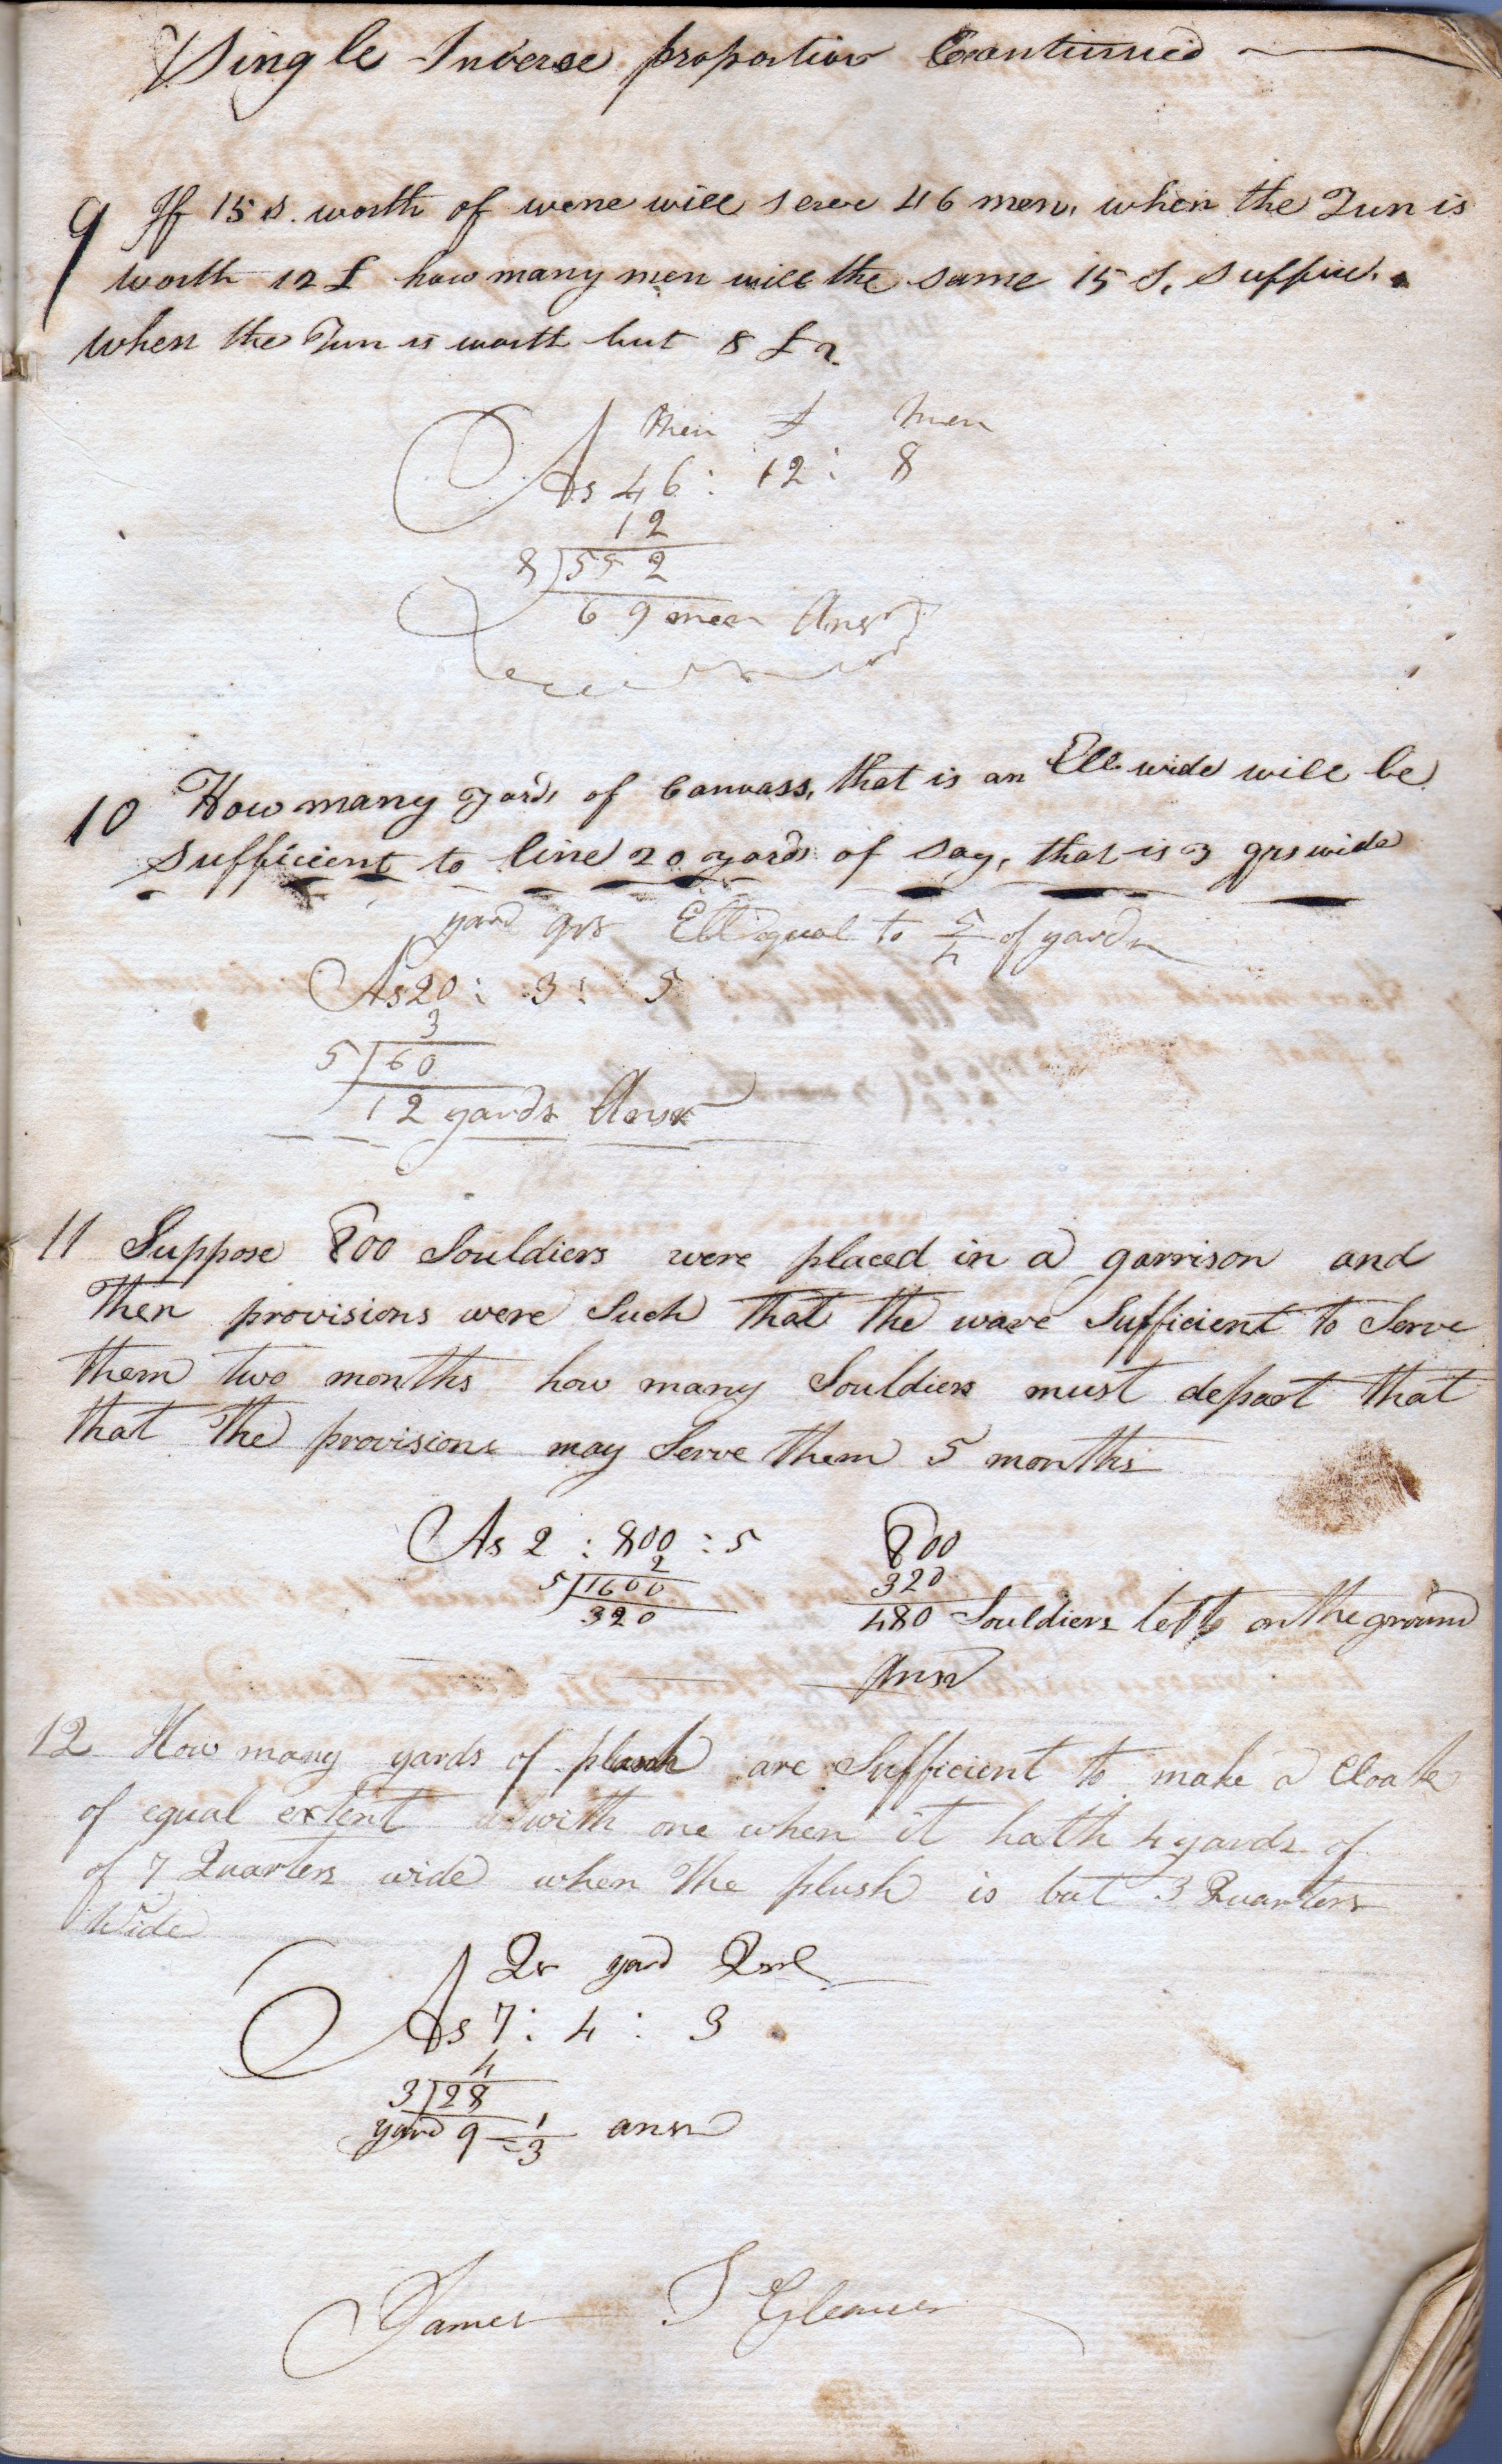 Single Inverse proportion Continued
9 If 15 s. worth of wine will serve 46 men, when the Tun is
worth 12 £ how many men will the same 15 S, suffice,
when the Tun is worth but 8 £?
Men £ Men
As 46 : 12 : 8
12
8)552
69 men Ansr
10 How many yards of Canvass, that is an Ell wide will be
sufficient to line 20 yards of say, that is 3 qrs wide
yard qrs Ell equal to 5/4 of yard
As 20 : 3 : 5
3
5)60
12 yards Ansr
11 Suppose 800 Souldiers were placed in a garrison and
Their provisions were Such That The ware Sufficient to Serve
them two months how many Souldiers must depart that
that The provisions may Serve Them 5 months
As 2 : 800 : 5 800
2 320
5)1600 480 Souldiers left on the ground
320 Ansr
12 How many yards of plush are Sufficient to make a Cloak
of equal extent with one when it hath 4 yards of
of 7 Quarters wide when The plush is but 3 Quarters
Wide
Qr yard Qr
As 7 : 4 : 3
4
3)28
yard 9 1/3 ansr
James